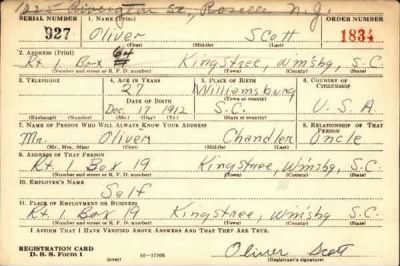 1225 St., Roselle N.J.
SERIAL NUMBER 1. NAME (Print) ORDER NUMBER
927 Oliver Scott 1834
(First) (Middle) (Last)
2. ADDRESS (Print)
64
Rt. 1 Box Kingstree, Wmsbg, S.C.
(Number and street or R. F. D. number) (Town) (County) (State)
3. TELEPHONE 4. AGE IN YEARS 5. PLACE OF BIRTH 6. COUNTRY OF CITIZENSHIP
27 Williamsburg
DATE OF BIRTH (Town or county)
Dec. 17 1912 S.C. U.S.A
(Exchange) (Number) (Mo.) (Day) (Yr.) (State or country)
7. NAME OF PERSON WHO WILL ALWAYS KNOW YOUR ADDRESS 8. RELATIONSHIP OF THAT PERSON
Mr. Oliver Chandler Uncle
(Mr., Mrs., Miss) (First) (Middle) (Last)
9. ADDRESS OF THAT PERSON
Rt. 1 Box 19 Kingstree, Wmsbg, S.C.
(Number and street or R. F. D. number) (Town) (County) (State)
10. EMPLOYER'S NAME
Self
11. PLACE OF EMPLOYMENT OR BUSINESS
Rt. 1 Box 19 Kingstree, Wmsbg, S.C.
(Number and street or R. F. D. number) (Town) (County) (State)
I AFFIRM THAT I HAVE VERIFIED ABOVE ANSWERS AND THAT THEY ARE TRUE.
REGISTRATION CARD
D. S. S. Form 1 (over) 16—17105 Oliver Scott
(Registrant's signature)